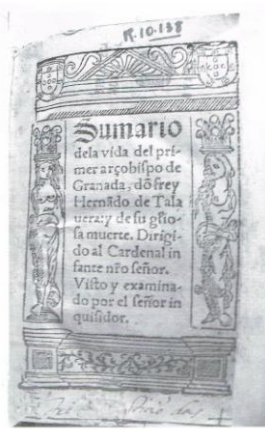 R.10.138
Sumario
dela vida del pri-
mer arçobispo de
Granada, dõ frey
Hernãdo de Tala
uera: y de su glio-
sa muerte. Dirigi-
do al Cardenal in
fante nr̃o señor.
Visto y examina-
do por el señor in
quisidor.